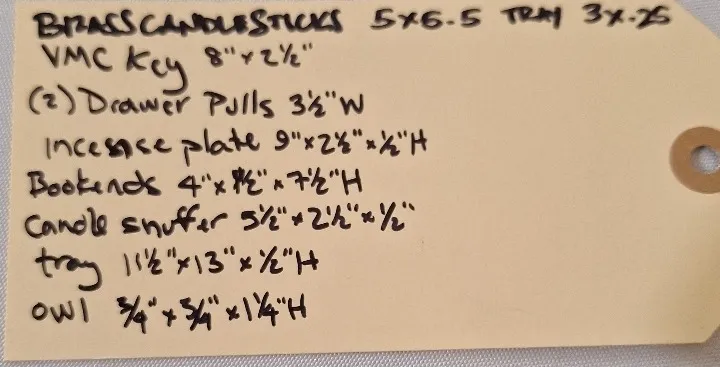 BRASS CANDLESTICKS 5x6.5 TRAY 3x.25
VMC Key 8"x2½"
(2) Drawer Pulls 3½"W
incense plate 9"x2½"x½"H
Bookends 4"x ½"x7½"H
Candle snuffer 5½"x2½"x½"
tray 11½"x13"x½"H
owl ¾"x¾"x1¼"H